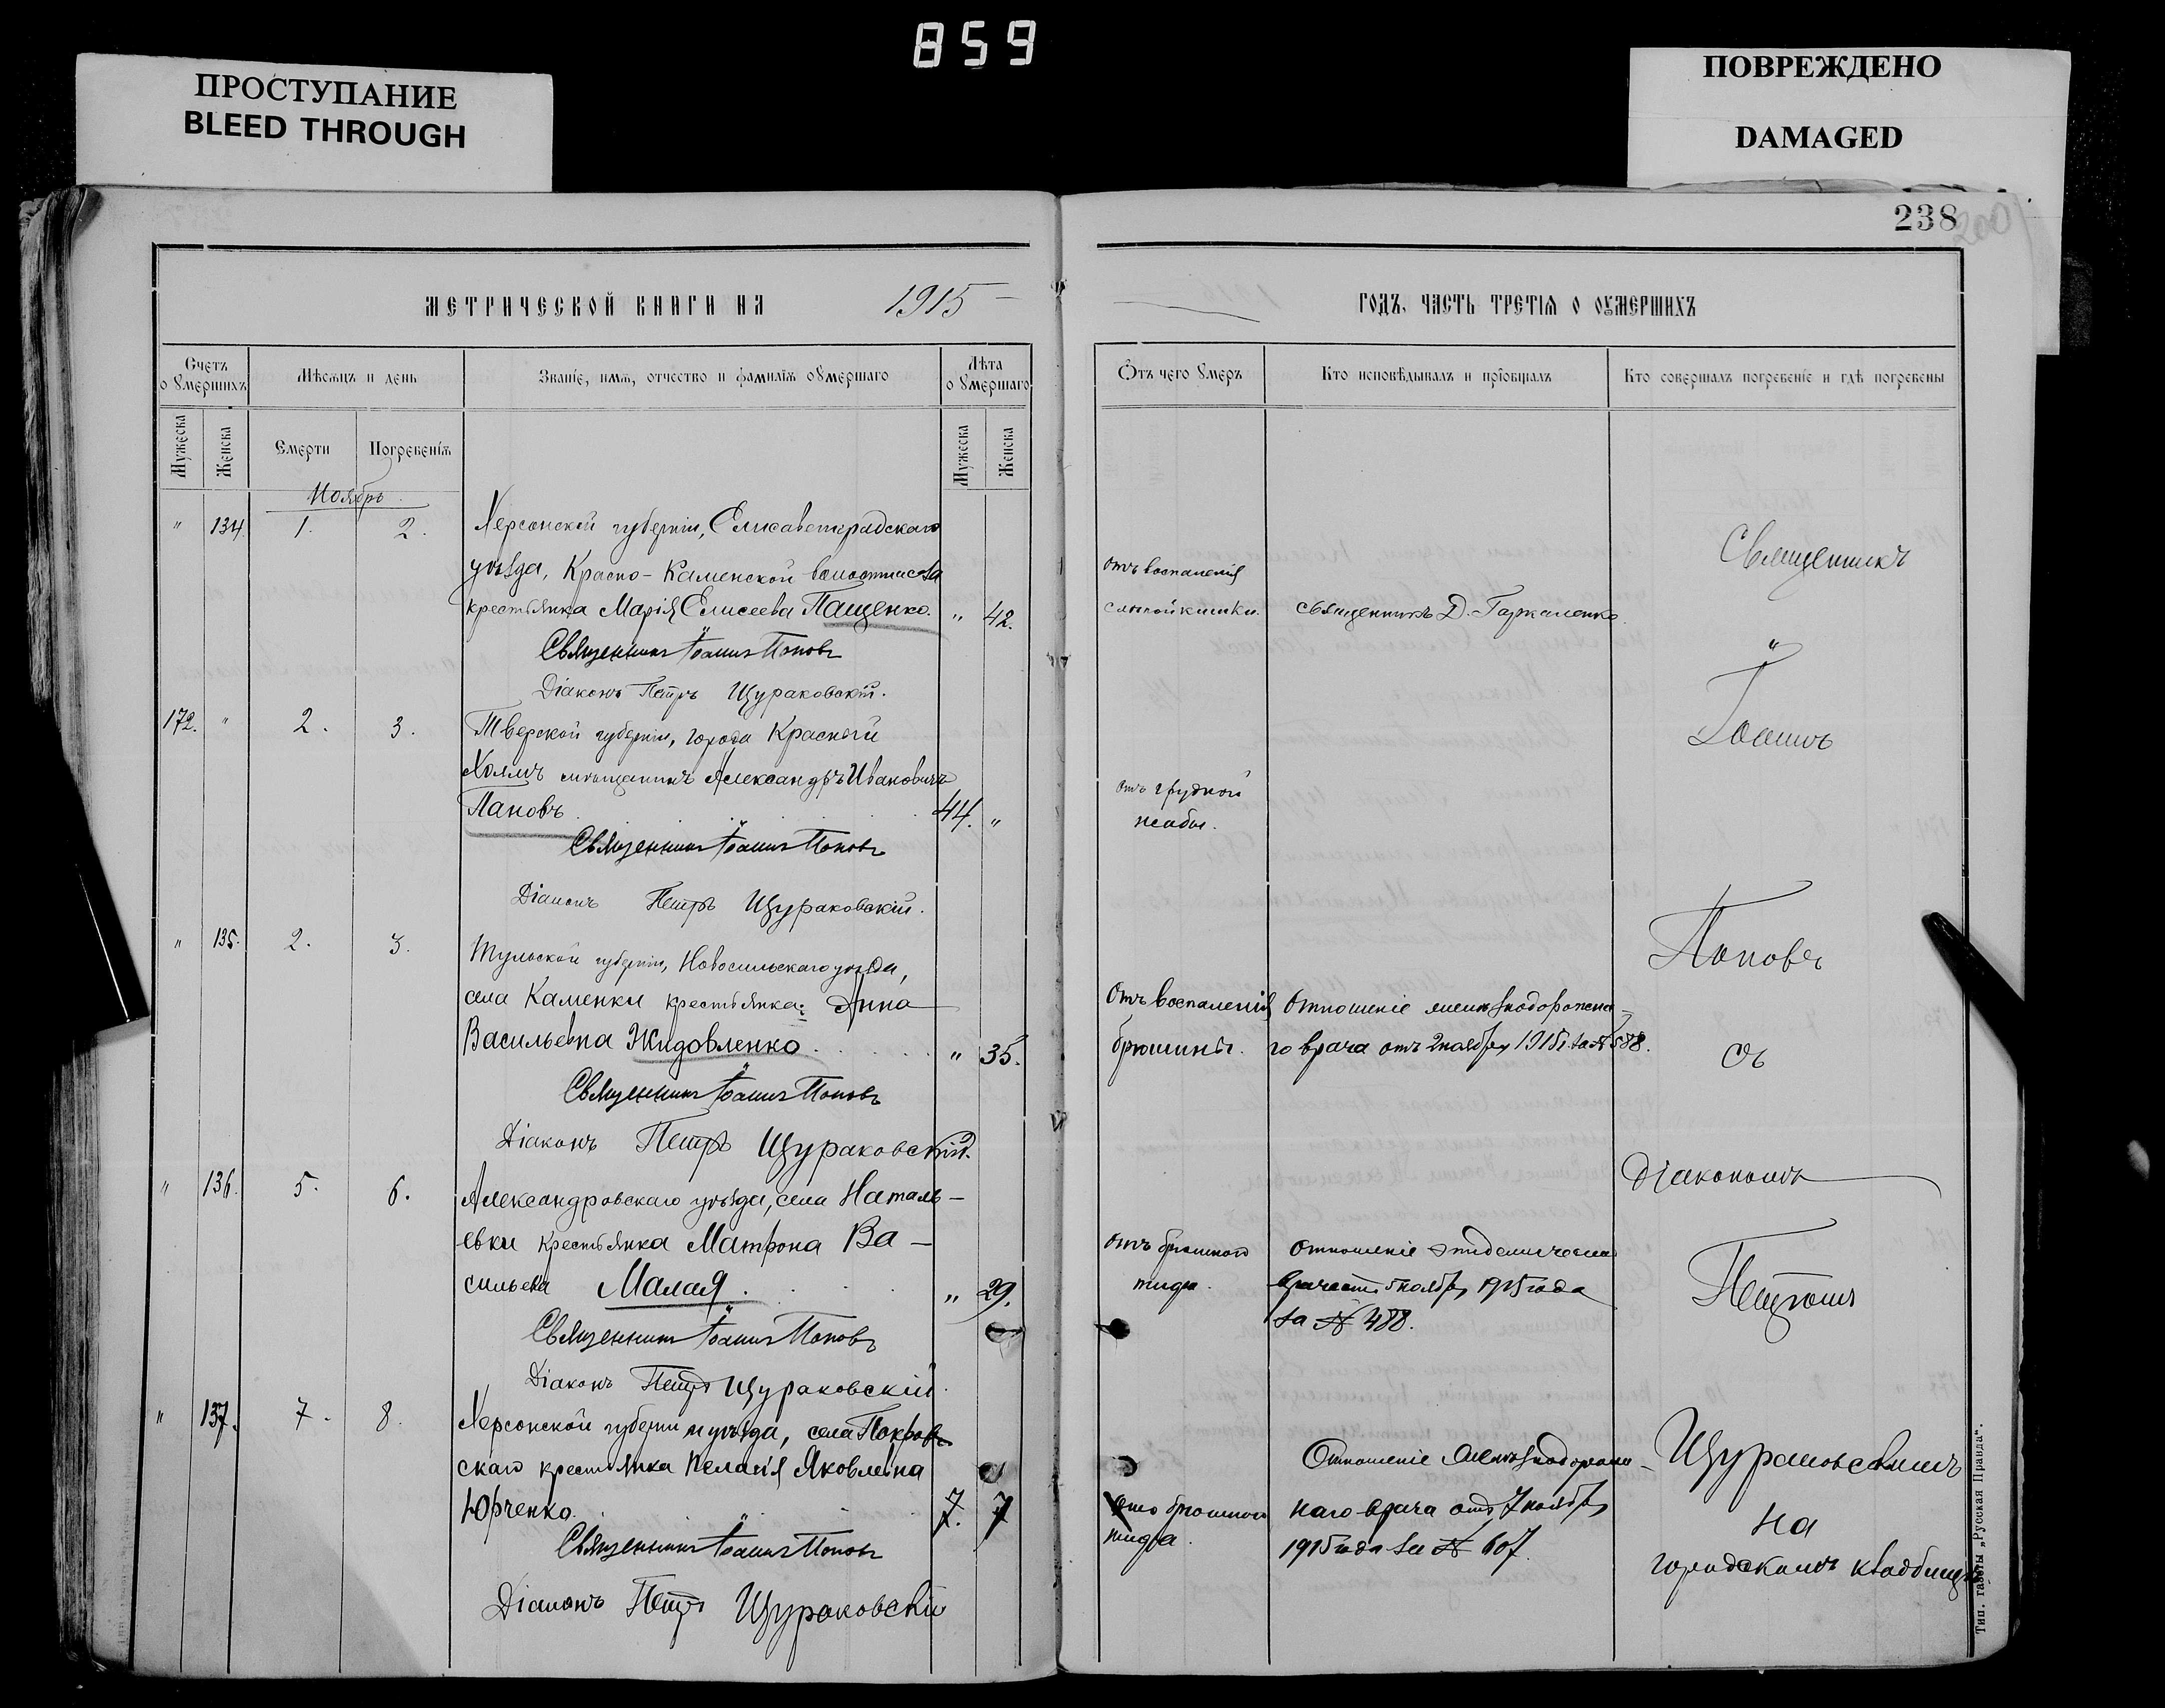 859
ПРОСТУПАНИЕ
BLEED THROUGH
ПОВРЕЖДЕНО
DAMAGED
238
МЕТРИЧЕСКОЙ КНИГИ НА 1915
Счетъ о умершихъ
Мѣсяцъ и день
Званіе, имя, отчество и фамилія умершаго
Лѣта о умершаго
Мужеска
Женска
Смерти
Погребенія
Мужеска
Женска
Ноябрь
" 134. 1. 2. Херсонской губерніи, Елисаветградскаго
уѣзда, Красно-Каменской волости села
крестьянка Марія Елисеева Пащенко. " 42.
Священникъ Іоаннъ Поповъ
Діаконъ Петръ Щураковскій.
172. " 2. 3. Тверской губерніи, города Красный
Холмъ мѣщанинъ Александръ Ивановичъ
Пановъ 44. "
Священникъ Іоаннъ Поповъ
Діаконъ Петръ Щураковскій.
" 135. 2. 3. Тульской губерніи, Новосильскаго уѣзда,
села Каменки крестьянка: Анна
Васильевна Жидовленко " 35.
Священникъ Іоаннъ Поповъ
Діаконъ Петръ Щураковскій.
" 136. 5. 6. Александровскаго уѣзда, села Наталь-
евки крестьянка Матрона Ва-
сильева Малая. " 29.
Священникъ Іоаннъ Поповъ
Діаконъ Петръ Щураковскій.
" 137. 7. 8. Херсонской губерніи и уѣзда, села Покров
скаго крестьянка Пелагія Яковлевна
Юрченко. 7. 7
Священникъ Іоаннъ Поповъ
Діаконъ Петръ Щураковскій
ГОДЪ, ЧАСТЬ ТРЕТІЯ О УМЕРШИХЪ
Отъ чего умеръ
Кто исповѣдывалъ и пріобщалъ
Кто совершалъ погребеніе и гдѣ погребены
отъ воспаленія
слѣпой кишки. священникъ Д. Гаркаленко.
отъ грудной
жабы.
Отъ воспаленія Отношеніе желѣзнодорожна-
брюшины. го врача отъ 2 ноября 1915 г. за № 588.
отъ брюшного Отношеніе эпидемическа
тифа. врача отъ 5 ноября 1915 года
за № 488.
Отношеніе желѣзнодорож-
отъ брюшного наго врача отъ 7 ноября
тифа. 1915 года за № 607.
Священникъ
Іоаннъ
Поповъ
съ
діакономъ
Петромъ
Щураковскимъ
на
городскомъ кладбищѣ
Тип. газеты „Русская Правда“.